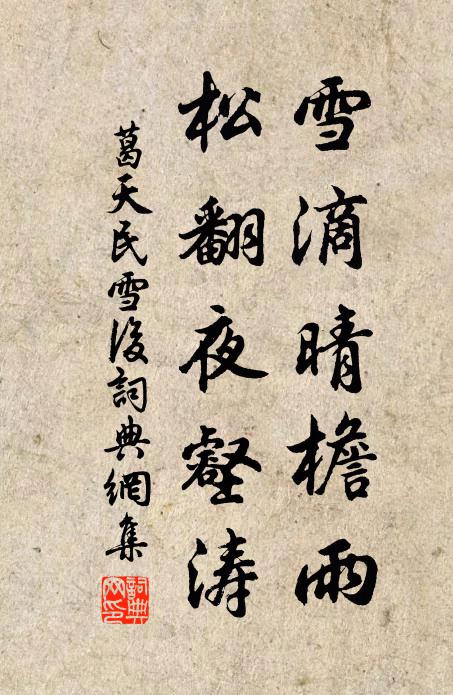 雪滴晴檐雨
松翻夜壑涛
葛天民雪後詞典網集
詞典網印